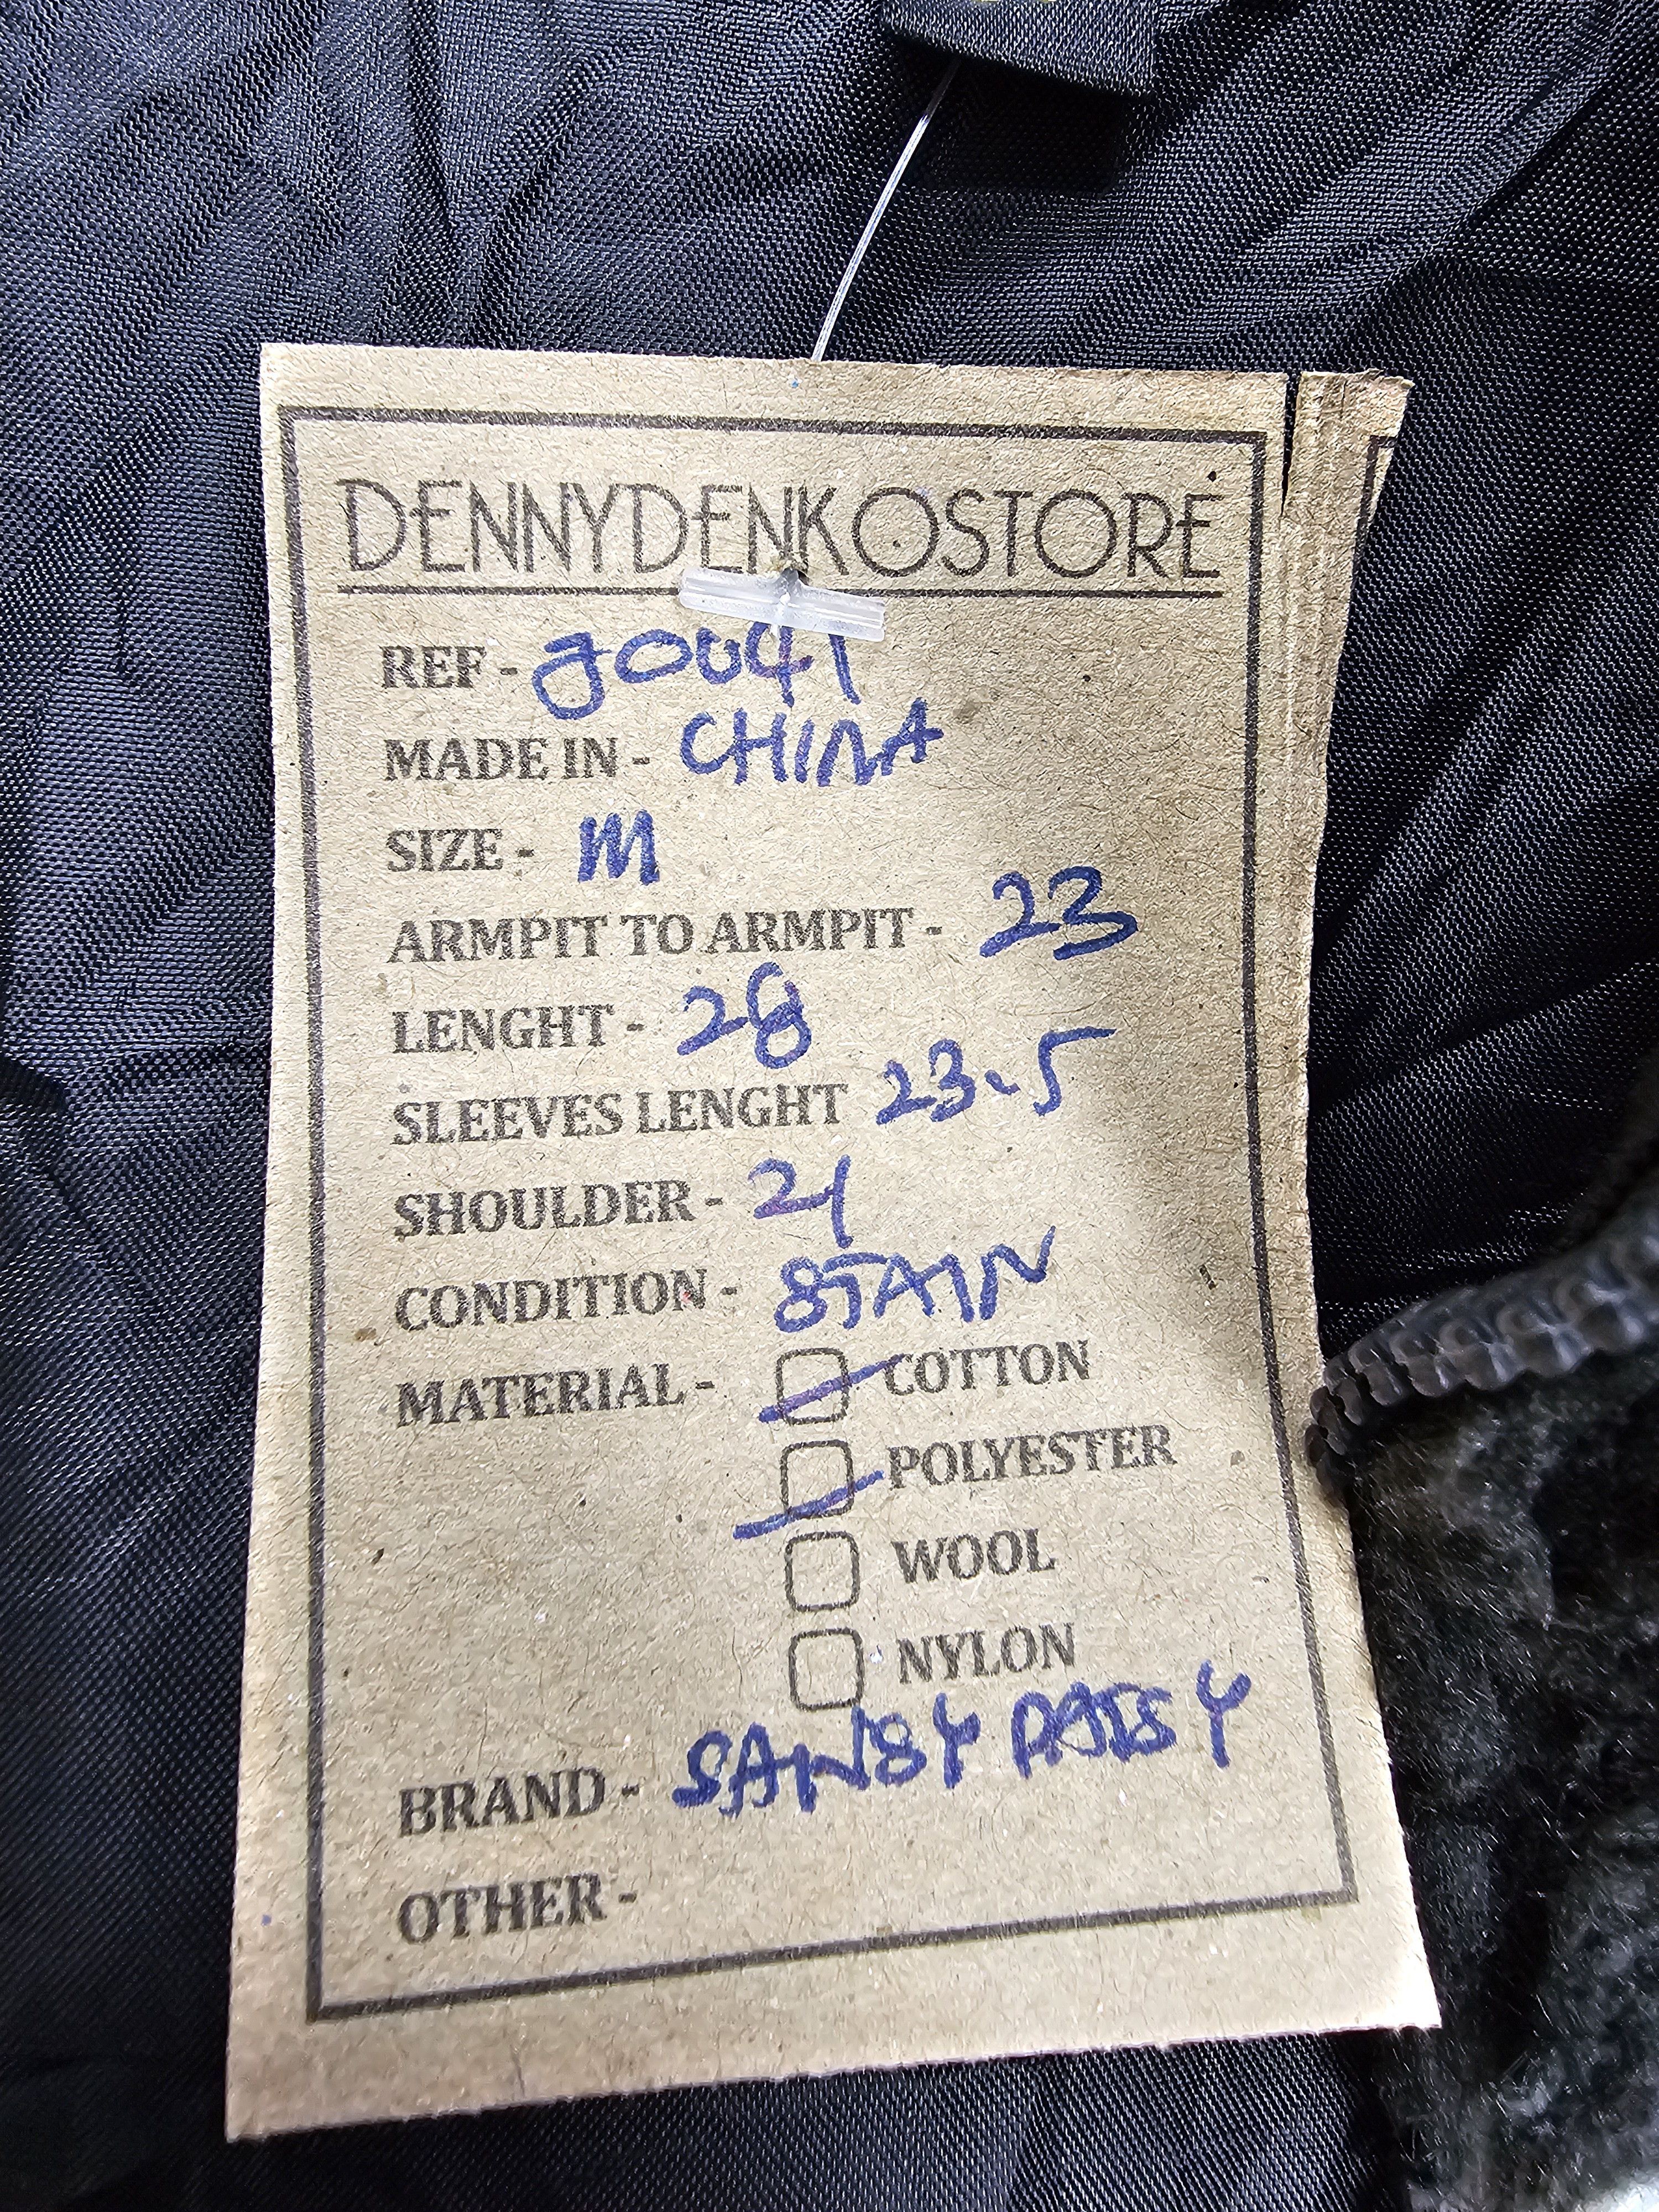 DENNYDENKOSTORE
REF - J0041
MADE IN - CHINA
SIZE - M
ARMPIT TO ARMPIT - 23
LENGHT - 28
SLEEVES LENGHT 23.5
SHOULDER - 21
CONDITION - STAIN
MATERIAL - COTTON
POLYESTER
WOOL
NYLON
BRAND - SANSY
OTHER -